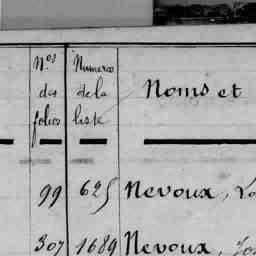 Nos des folios
Numeros de la liste
Noms et
99 625 Nevoux,
307 1689 Nevoux,